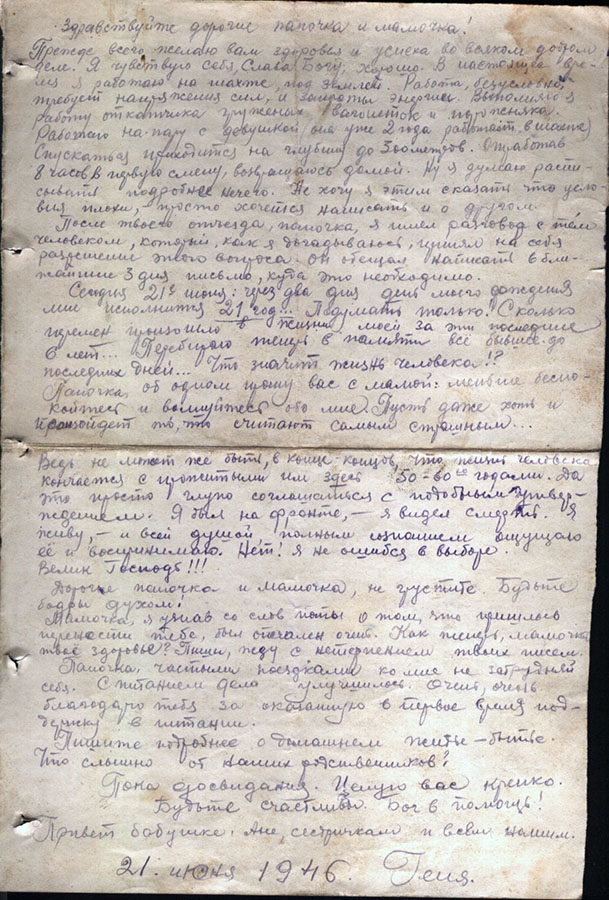 Здравствуйте дорогие папочка и мамочка!
Прежде всего желаю вам здоровья и успеха во всяком добром
деле. Я чувствую себя, Слава Богу, хорошо. В настоящее вре-
мя я работаю на шахте, под землёй. Работа, безусловно,
требует напряжения сил, и затраты энергии. Выполняю я
работу откатчика груженых вагонеток и порожняка.
Работаю на-пару с девушкой (она уже 2 года работает в шахте)
Спускаться приходится на глубину до 300 метров. Отработав
8 часов в первую смену, возвращаюсь домой. Ну я думаю распи-
сывать подробнее нечего. Не хочу я этим сказать что усло-
вия плохи, – просто хочется написать и о другом.
После твоего отъезда, папочка, я имел разговор с тем
человеком, который, как я догадываюсь, принял на себя
разрешение этого вопроса. Он обещал написать в бли-
жайшие 3 дня письмо, куда это необходимо.
Сегодня 21е июня: через два дня день моего рождения
мне исполнится 21 год... Подумать только! Сколько
перемен произошло в жизни моей за эти последние
6 лет... Перебираю теперь в памяти всё бывшее до
последних дней... Что значит жизнь человека!?
Папочка, об одном прошу вас с мамой: меньше беспо-
койтесь и волнуйтесь обо мне. Пусть даже хоть и
произойдет то, что считают самым страшным...
Ведь не может же быть, в конце-концов, что жизнь человека
кончается с прожитыми им здесь 50-ю годами. Да
это просто глупо соглашаться с подобным утвер-
ждением. Я был на фронте, – я видел смерть. Я
живу, – и всей душой, полным сознанием ощущаю
её и воспринимаю. Нет! Я не ошибся в выборе.
Велик Господь!!!
Дорогие папочка и мамочка, не грустите. Будьте
бодры духом!
Мамочка, я узнав со слов папы о том, что пришлось
перенести тебе, был опечален очень. Как теперь, мамочка
твоё здоровье? Пиши, жду с нетерпением твоих писем.
Папочка, частыми поездками ко мне не затрудняй
себя. С питанием дело улучшилось. Очень, очень
благодарю тебя за оказанную в первое время под-
держку в питании.
Пишите подробнее о домашнем житье-бытье.
Что слышно от наших родственников?
Пока досвидания. Целую вас крепко.
Будьте счастливы. Бог в помощь!
Привет бабушке, Ане, сестричкам и всем нашим.
21 июня 1946. Геня.